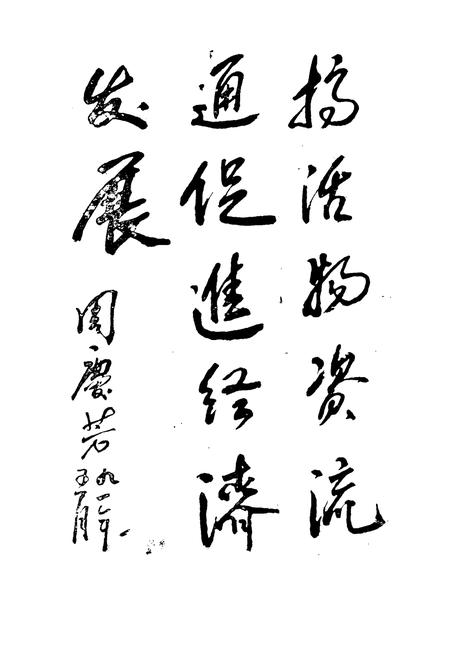 搞活物资流
通促進经濟
发展
周慶芳
九一年
五月